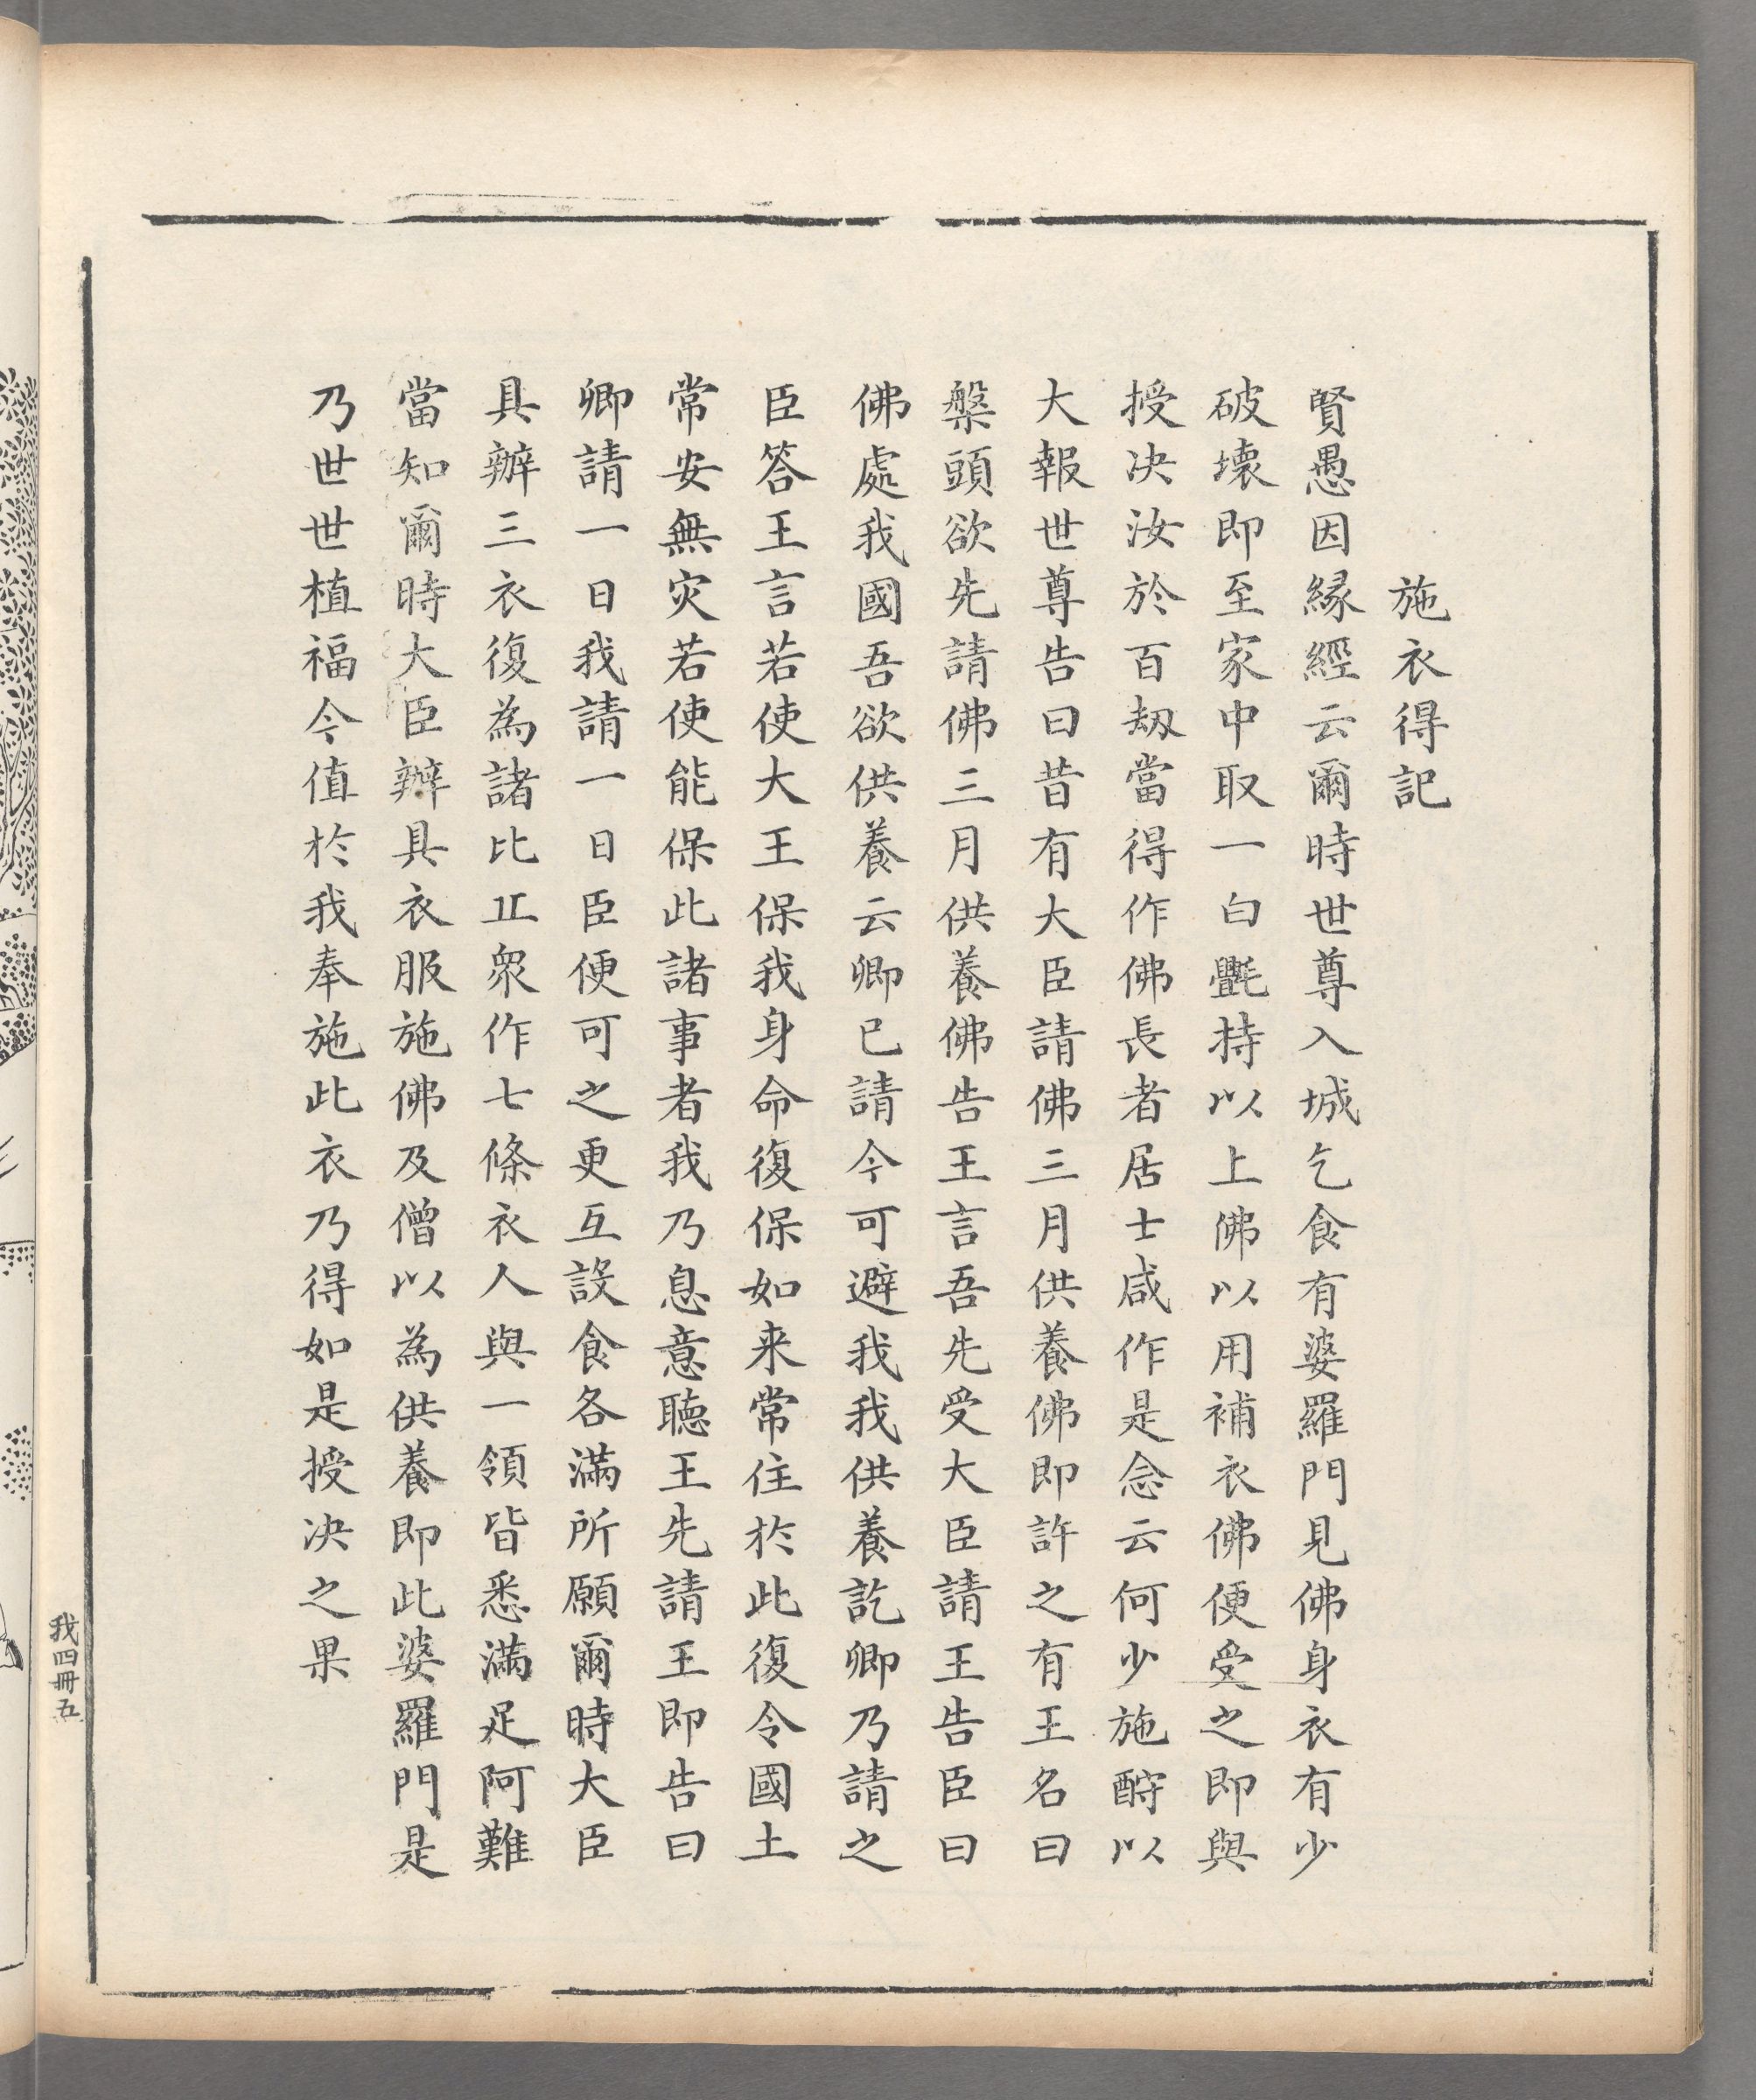 施衣得記
賢愚因縁經云爾時世尊入城乞食有婆羅門見佛身衣有少
破壞即至家中取一白㲲持以上佛以用補衣佛便受之即與
授决汝於百刼當得作佛長者居士咸作是念云何少施酧以
大報世尊告曰昔有大臣請佛三月供養佛即許之有王名曰
槃頭欲先請佛三月供養佛告王言吾先受大臣請王告臣曰
佛處我國吾欲供養云卿已請今可避我我供養訖卿乃請之
臣答王言若使大王保我身命復保如来常住於此復令國土
常安無灾若使能保此諸事者我乃息意聽王先請王即告曰
卿請一日我請一日臣便可之更互設食各滿所願爾時大臣
具辦三衣復為諸比丘衆作七條衣人與一領皆悉滿足阿難
當知爾時大臣辦具衣服施佛及僧以為供養即此婆羅門是
乃世世植福今值於我奉施此衣乃得如是授决之果
我四冊五